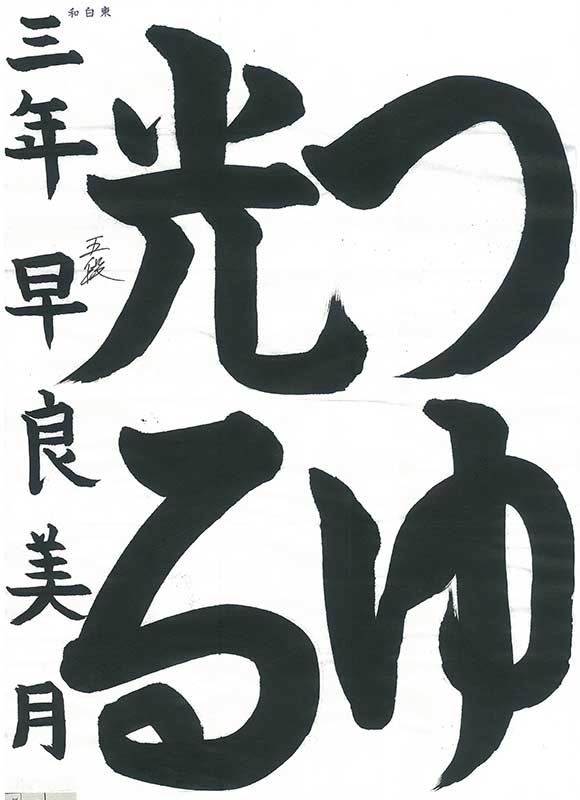 つゆ
光る
三年 早良美月
五段
東白和